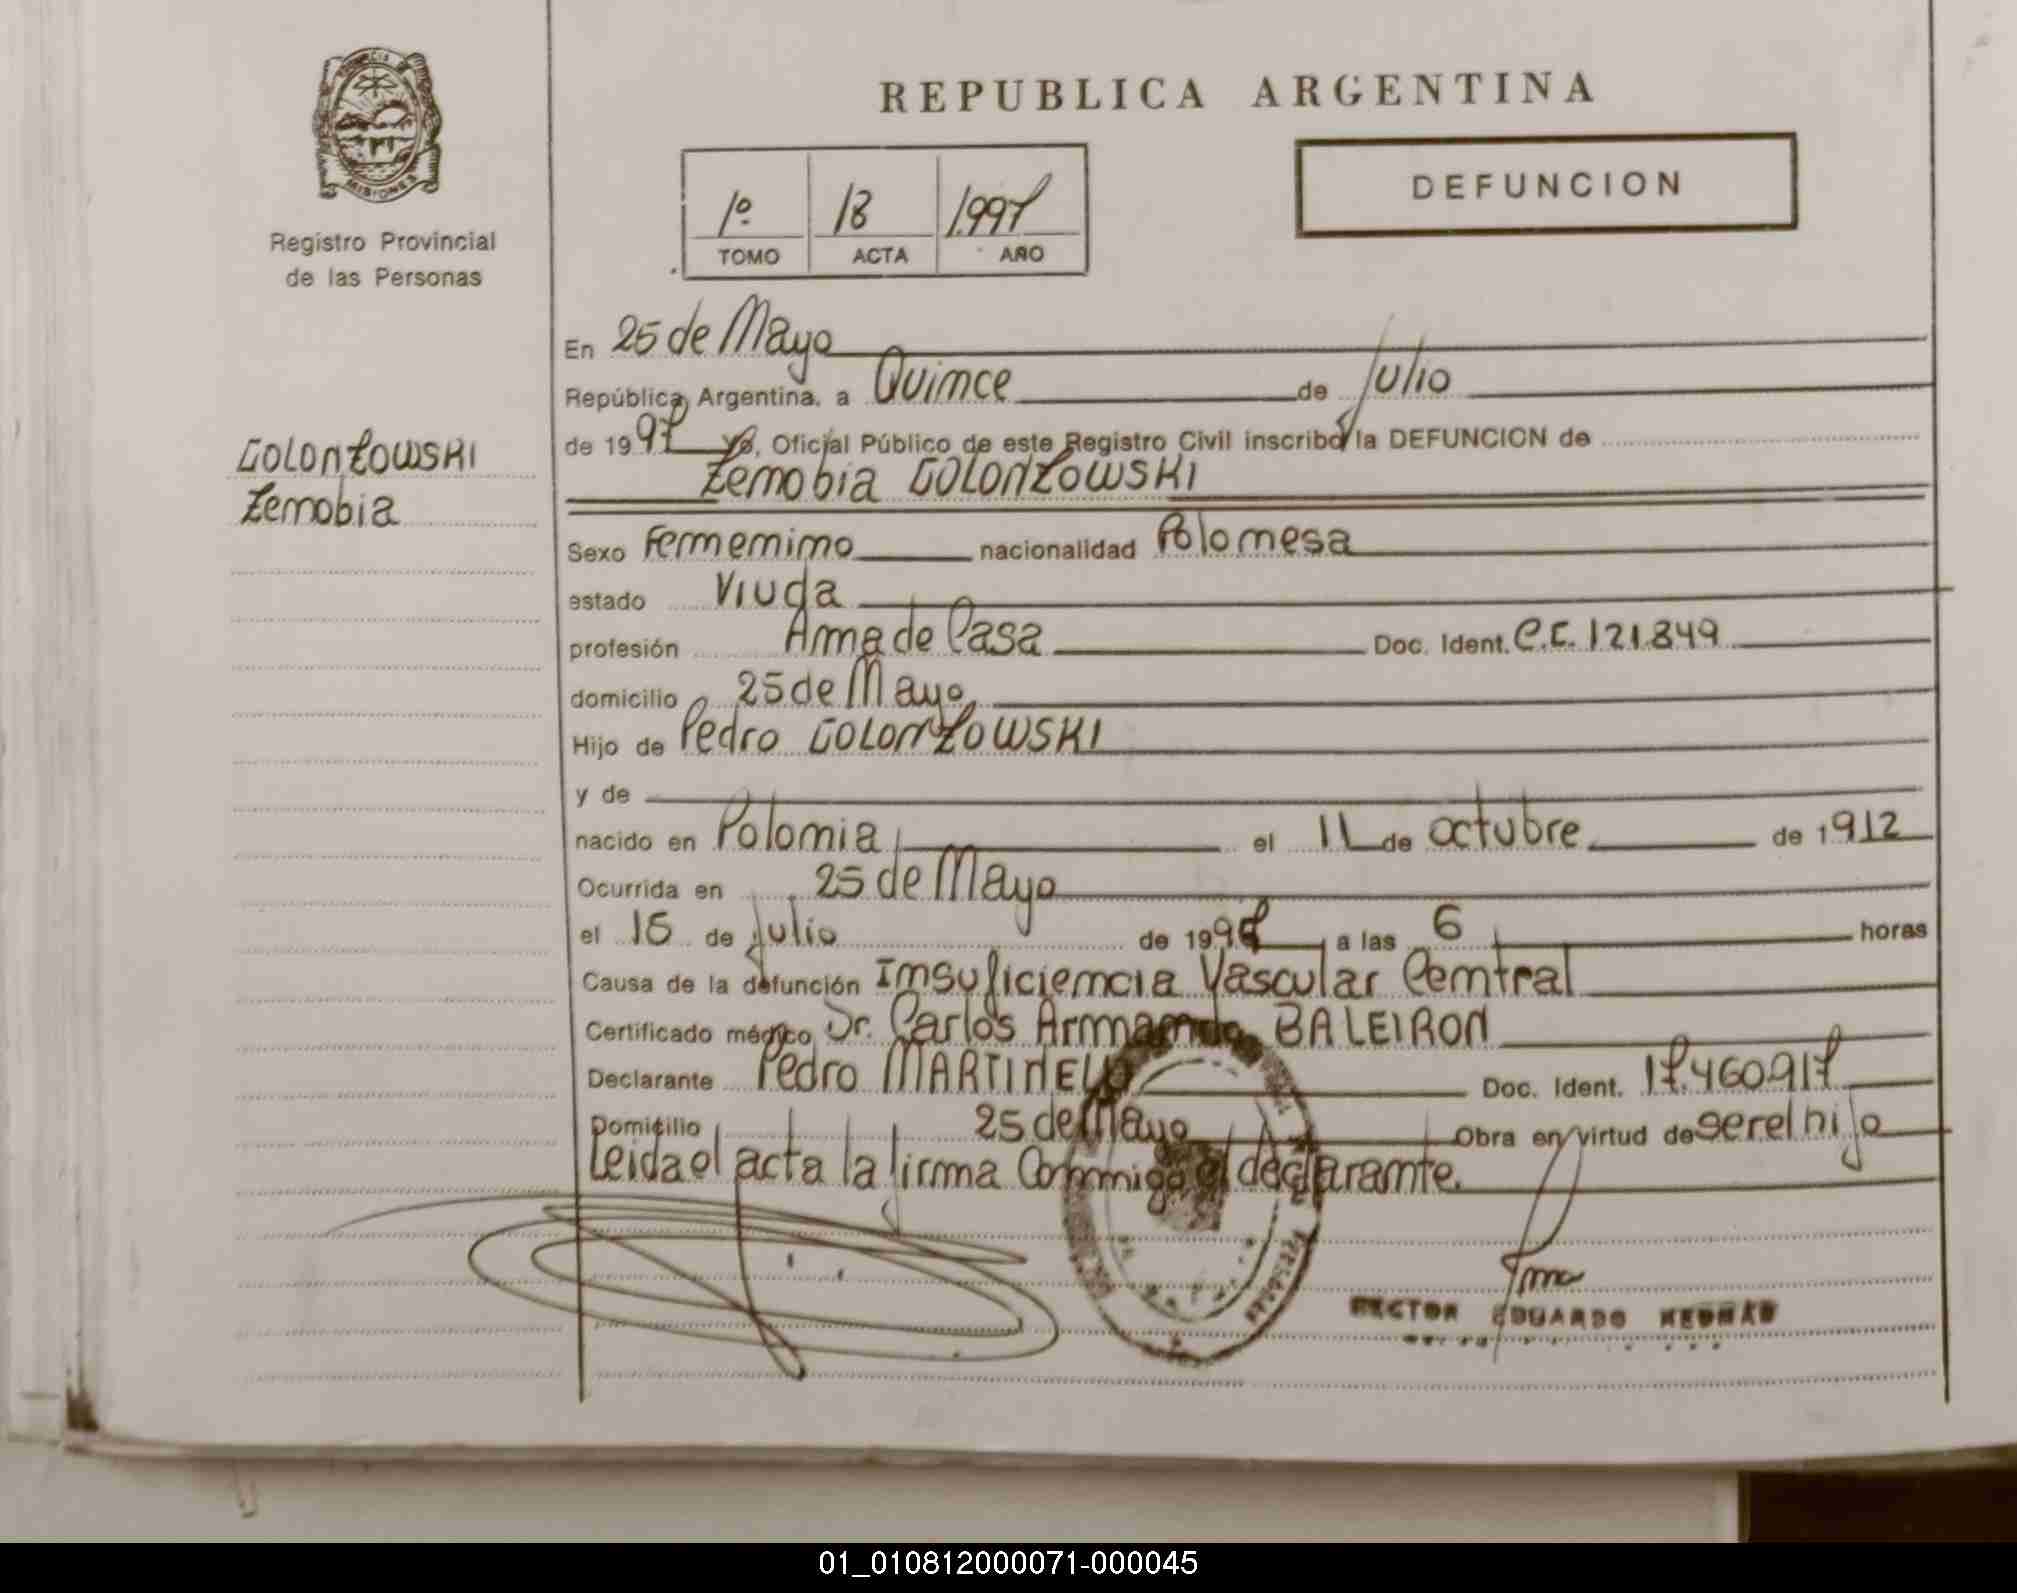 REPUBLICA ARGENTINA
DEFUNCION
MISIONES
Registro Provincial
de las Personas
1º 18 1.997
TOMO ACTA AÑO
GOLONZOWSKI
Zenobia
En 25 de Mayo
República Argentina, a Quince de Julio
de 1997 Yo, Oficial Público de este Registro Civil inscribo la DEFUNCION de
Zenobia GOLONZOWSKI
Sexo Femenino nacionalidad Polonesa
estado Viuda
profesión Ama de Casa Doc. Ident. C.C. 121.849
domicilio 25 de Mayo
Hijo de Pedro GOLONZOWSKI
y de
nacido en Polonia el 11 de octubre de 1912
Ocurrida en 25 de Mayo
el 15 de Julio de 1997 a las 6 horas
Causa de la defunción Insuficiencia Vascular Central
Certificado médico Dr. Carlos Armando BALEIRON
Declarante Pedro MARTINELI Doc. Ident. 17.460917
Domicilio 25 de Mayo Obra en virtud de ser el hijo
Leida el acta la firma Conmigo el declarante.
HECTOR EDUARDO
01_010812000071-000045